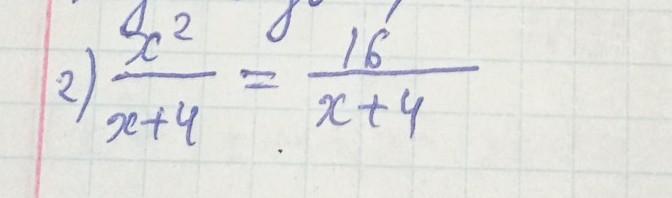 2) x²/(x+4) = 16/(x+4)